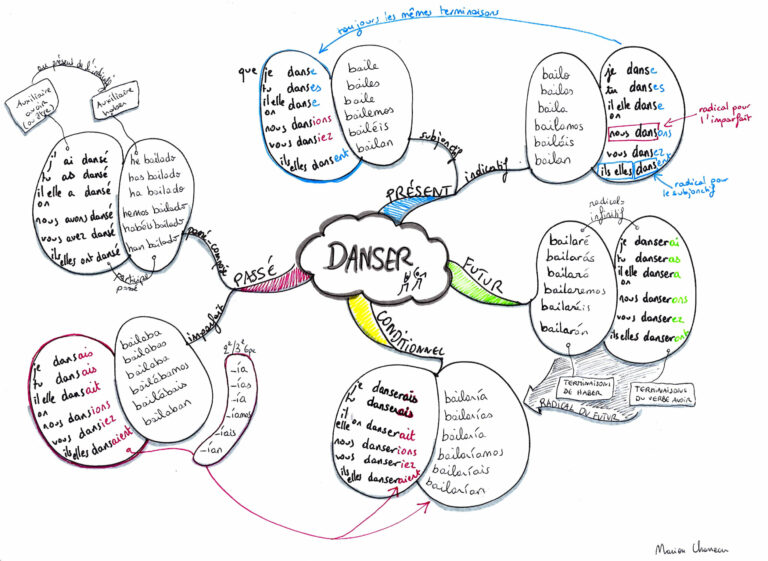 DANSER
PRÉSENT
subjonctif
indicatif
toujours les mêmes terminaisons
que je danse
tu danses
il elle danse
on
nous dansions
vous dansiez
ils elles dansent
baile
bailes
baile
bailemos
bailéis
bailen
bailo
bailas
baila
bailamos
bailáis
bailan
je danse
tu danses
il elle danse
on
nous dansons
vous dansez
ils elles dansent
radical pour
l'imparfait
radical pour
le subjonctif
FUTUR
radical=
infinitif
bailaré
bailarás
bailará
bailaremos
bailaréis
bailarán
je danserai
tu danseras
il elle dansera
on
nous danserons
vous danserez
ils elles danseront
TERMINAISONS
DE HABER
TERMINAISONS
DU VERBE AVOIR
RADICAL DU FUTUR
CONDITIONNEL
je danserais
tu danserais
il
elle on danserait
nous danserions
vous danseriez
ils elles danseraient
bailaría
bailarías
bailaría
bailaríamos
bailaríais
bailarían
PASSÉ
passé composé
au présent de l'indicatif
Auxiliaire
avoir
(ou être)
Auxiliaire
haber
j' ai dansé
tu as dansé
il elle a dansé
on
nous avons dansé
vous avez dansé
ils elles ont dansé
he bailado
has bailado
ha bailado
hemos bailado
habéis bailado
han bailado
participe
passé
imparfait
je dansais
tu dansais
il elle dansait
on
nous dansions
vous dansiez
ils elles dansaient
bailaba
bailabas
bailaba
bailábamos
bailábais
bailaban
2e/3e gpe
-ía
-ías
-ía
-íamos
-íais
-ían